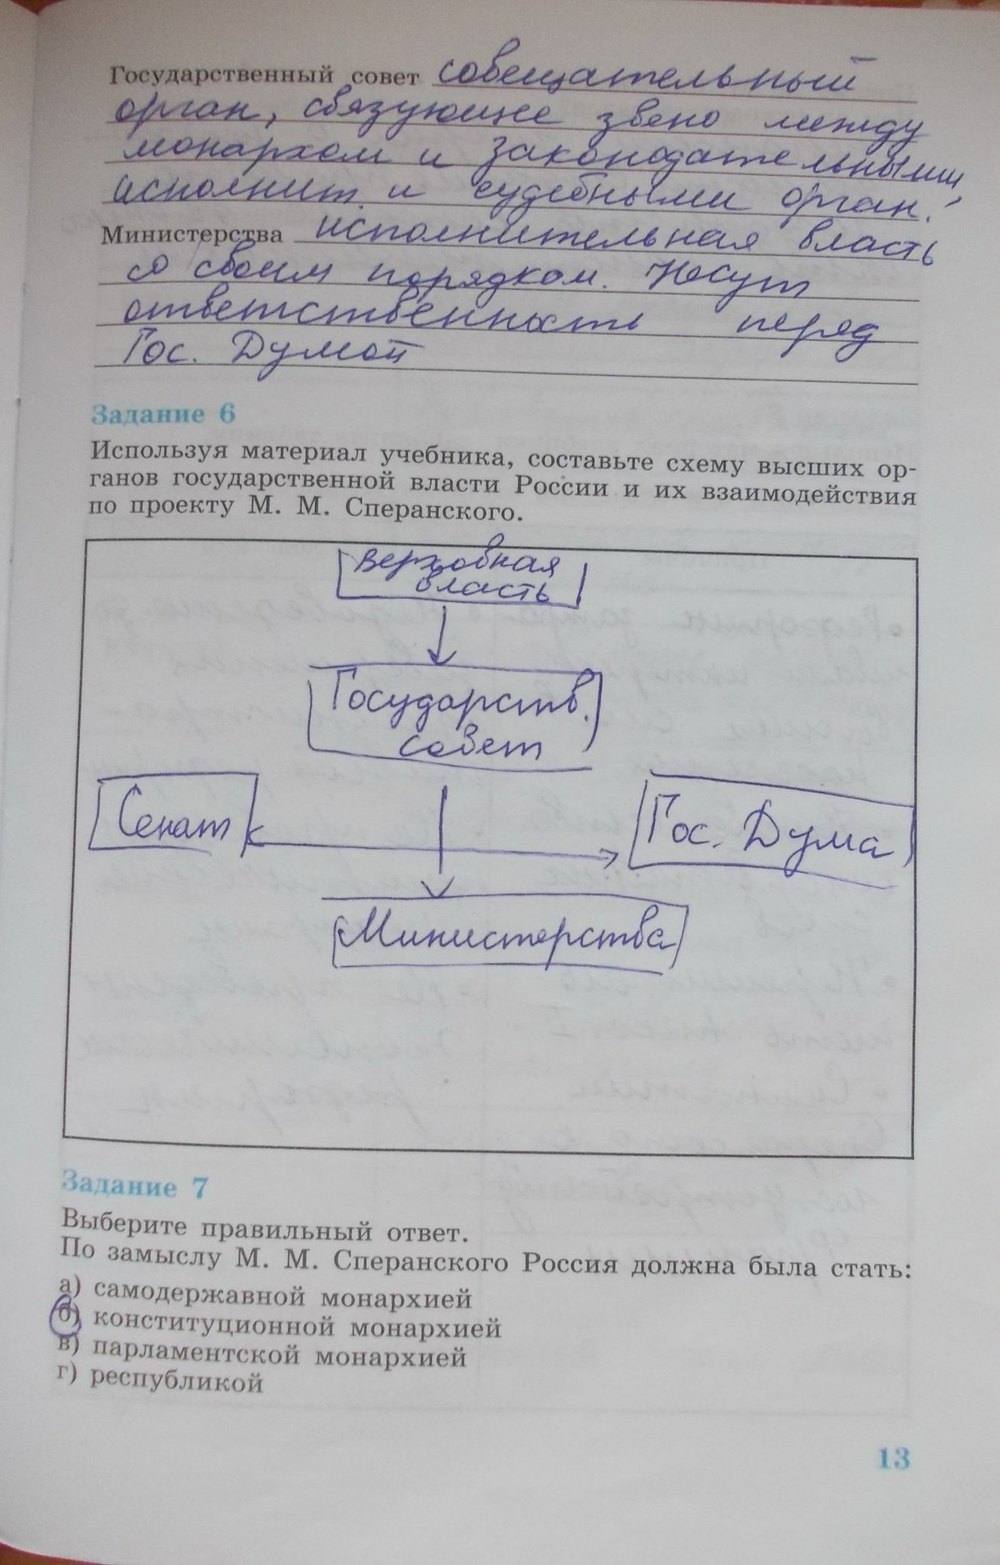 Государственный совет совещательный
орган, связующее звено между
монархом и законодательными,
исполнит. и судебными орган.
Министерства исполнительная власть
со своим порядком. Несут
ответственность перед
Гос. Думой
Задание 6
Используя материал учебника, составьте схему высших ор-
ганов государственной власти России и их взаимодействия
по проекту М. М. Сперанского.
Верховная
власть
Государств.
совет
Сенат
Гос. Дума
Министерства
Задание 7
Выберите правильный ответ.
По замыслу М. М. Сперанского Россия должна была стать:
а) самодержавной монархией
б) конституционной монархией
в) парламентской монархией
г) республикой
13